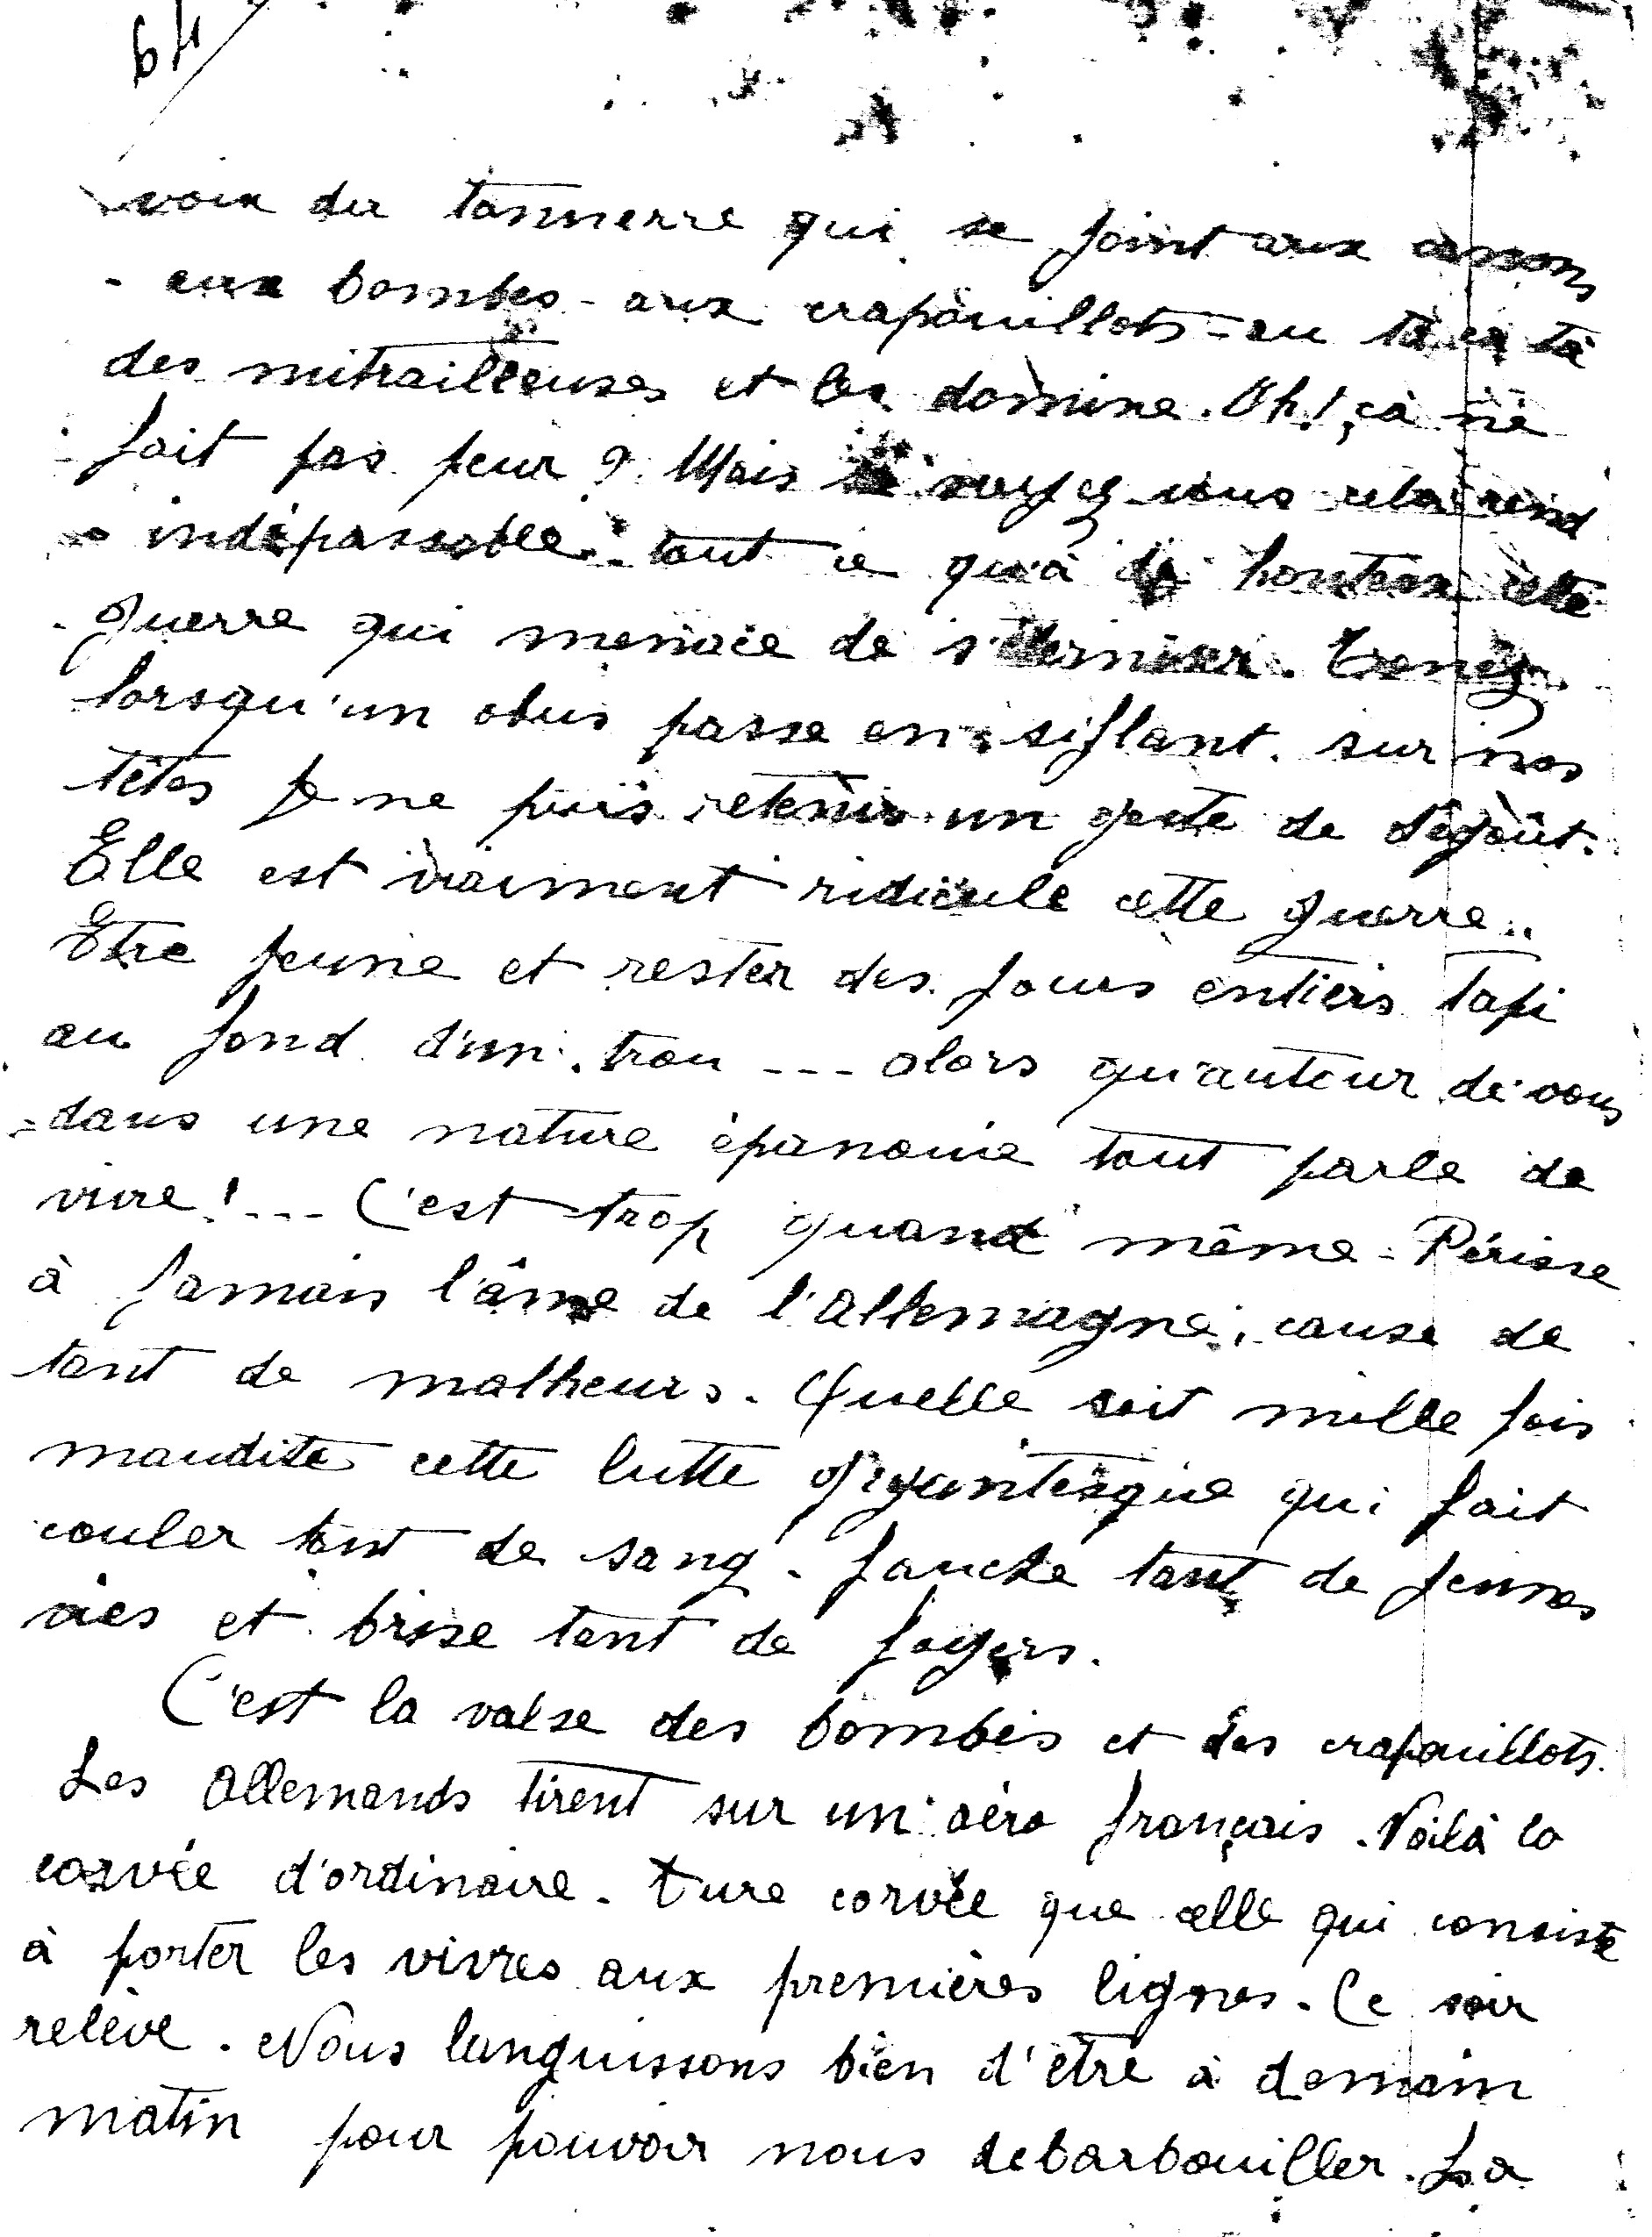 64
voix du tonnerre qui se joint aux canons
- aux bombes - aux crapouillots - au ta ca ta
des mitrailleuses et les domine. Oh! ça ne
fait pas peur ? Mais voyez vous cela rend
indépassable tout ce qu'a de honteux cette
guerre qui menace de s'éterniser. Tenez
lorsqu'un obus passe en siflant sur nos
têtes je ne puis retenir un geste de dégoût.
Elle est vraiment ridicule cette guerre..
Etre jeune et rester des jours entiers tapi
au fond d'un trou --- alors qu'autour de vous
dans une nature épanouie tout parle de
vivre ! --- C'est trop quand même - Périsse
à jamais l'âme de l'Allemagne, cause de
tant de malheurs. Quelle soit mille fois
maudite cette lutte gigantesque qui fait
couler tant de sang - fauche tant de jeunes
vies et brise tant de foyers.
C'est la valse des bombes et des crapouillots.
Les Allemands tirent sur un aéro français. Voilà la
corvée d'ordinaire. Dure corvée que celle qui consiste
à porter les vivres aux premières lignes. Ce soir
relève. Nous languissons bien d'être à demain
matin pour pouvoir nous debarbouiller. La